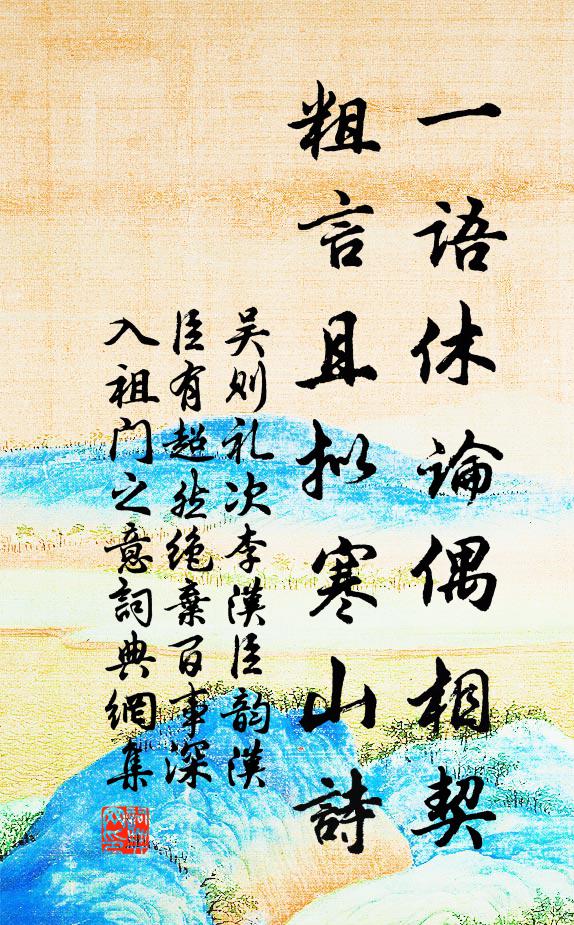 一語休論偶相契
粗言且拟寒山詩
吴则礼次李漢臣韵漢
臣有超然绝棄百事深
入祖门之意詞典網集